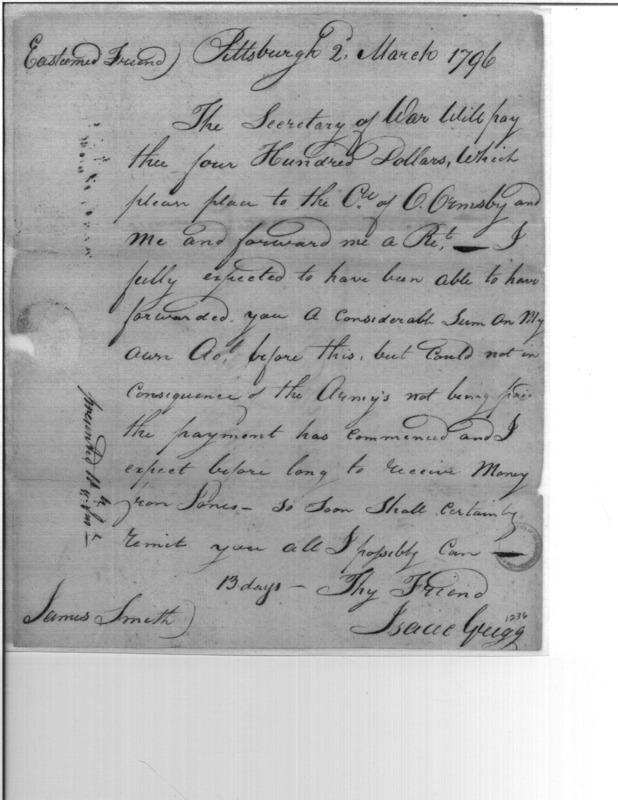 Easteemed Friend) Pittsburgh 2d. March 1796
The Secretary of War Will pay
thee four Hundred Dollars, Which
please place to the Cr. of O. Ormsby and
Me and forward me a Rct. — I
fully expected to have been able to have
forwarded you A Considerable Sum on My
own Act. before this, but Could not in
Consequence of the Army's not being paid
the payment has commenced and I
expect before long to receive Money
from — So Soon Shall Certainly
remit you all I possibly Can —
13 days — Thy Friend
James Smith) Isaac Gregg
1236